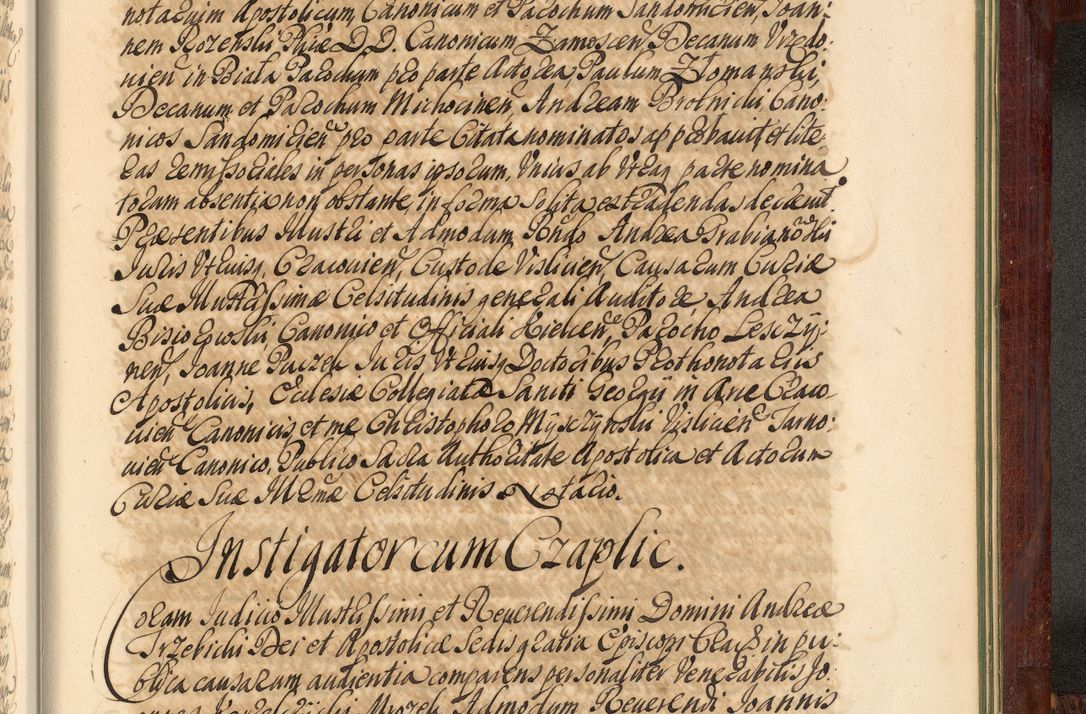 notarium Apostolicum, Canonicum et Parochum Sandomirien, Joan:
nem Rozenski Phiæ D.D. Canonicum Zamoscen, Decanum Urzedo:
uien in Biała Parochum pro parte Actorea Paulum Złomanski,
Decanum et Parochum Michocinen, Andream Brolnicki Cano:
nicos Sandomirien pro parte Citata nominatos approbauit et lite
ras remissoriales in personas ipsorum, Unius ab utraq parte nomina
torum absentia non obstante, in forma solita extradendas decreuit.
Præsentibus Illustri et Admodum Rndo Andrea Grabianoski
Juris Utriusq, Cracouien, Custode Vislicien, Causarum Curiæ
Suæ Illustrissimæ Celsitudinis generali Auditore Andrea
Canonico et Officiali Kielcen, Parocho Lesczÿ:
nen, Joanne Juris Utriusq Doctoribus Prothonotariis
Apostolicis, Ecclesiæ Collegiatæ Sancti Georgii in Arce Craco
uien Canonicis, et me Christophoro Mÿsczÿnski Vislicien Tarno:
uien Canonico, Publico Sacra Authoritate Apostolica et Actorum
Curiæ Suæ Illmæ Celsitudinis Notario.
Instigator cum Czaplic.
Coram Judicio Illustrissimi et Reuerendissimi Domini Andreæ
Trzebicki Dei et Apostolicæ Sedis gratia Episcopi Crac. in pu:
blica causarum audientia comparens personaliter Venerabilis Jo
Mrozek Admodum Reuerendi Joannis